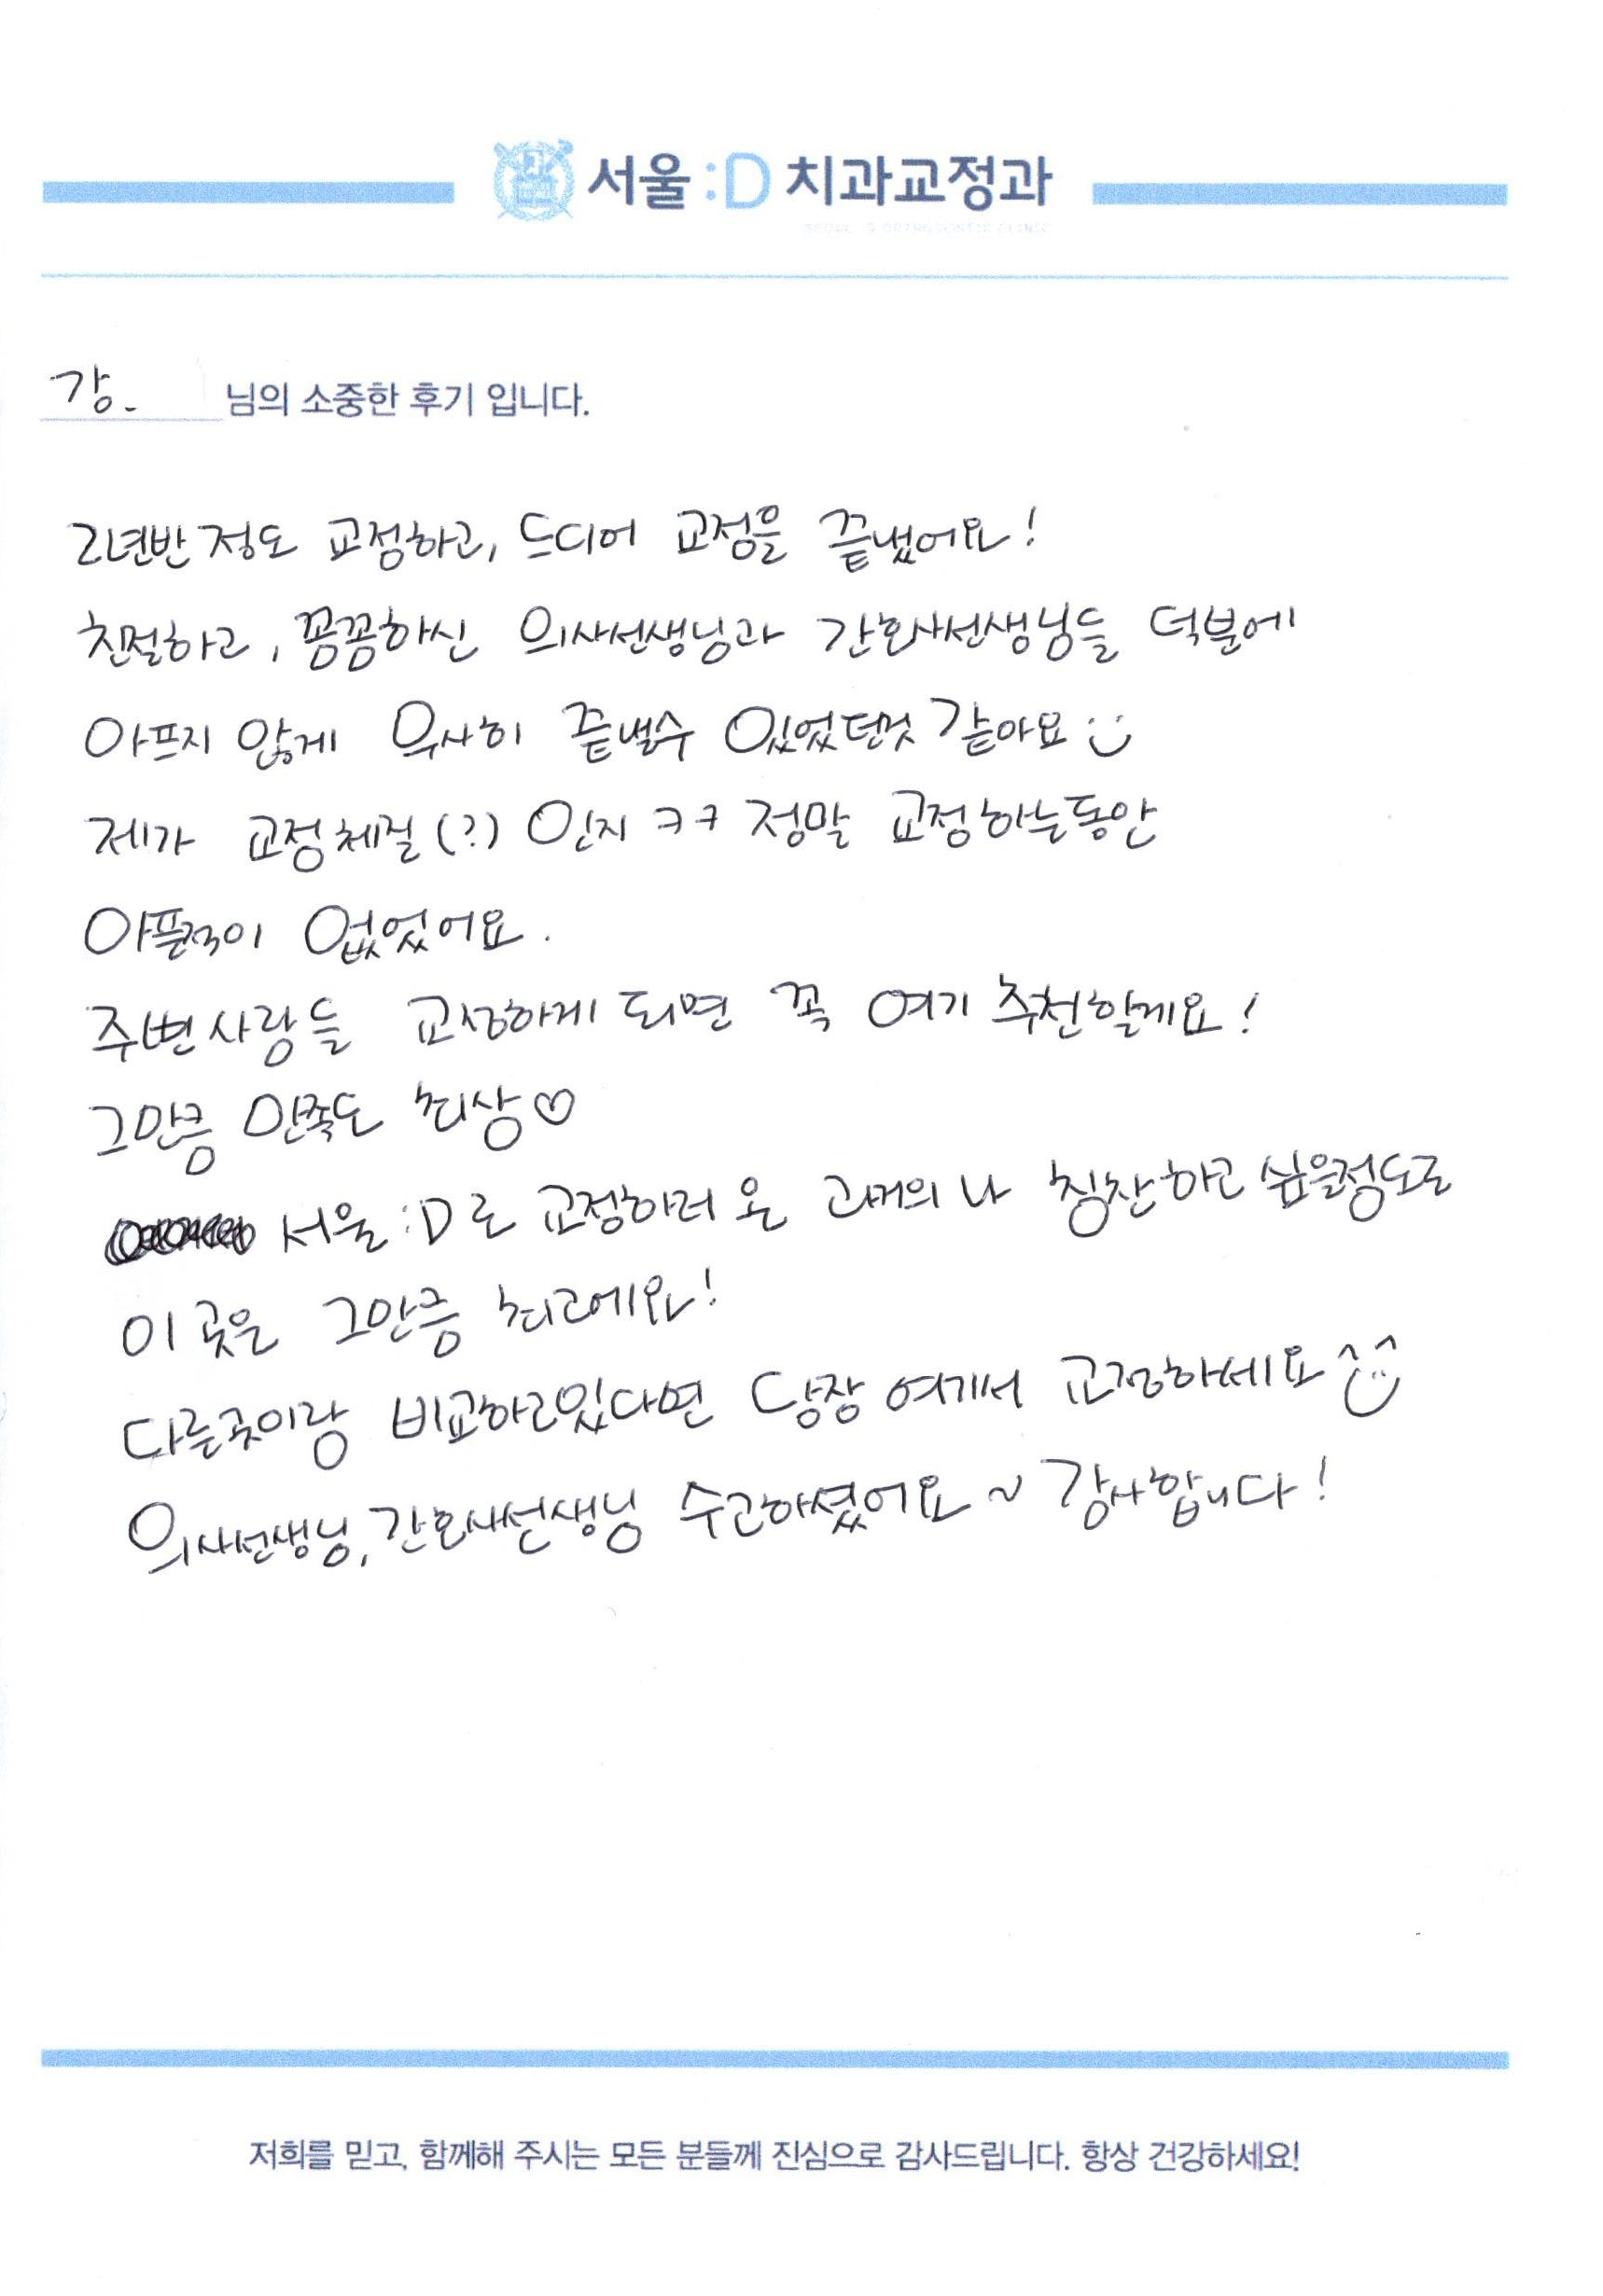 서울 :D 치과교정과
SEOUL :D ORTHODONTIC CLINIC
강. 님의 소중한 후기 입니다.
2년반 정도 교정하고, 드디어 교정을 끝냈어요!
친절하고, 꼼꼼하신 의사선생님과 간호사선생님들 덕분에
아프지 않게 무사히 끝낼수 있었던것 같아요
제가 교정체질(?) 인지 ㅋㅋ 정말 교정하는동안
아플적이 없었어요.
주변사람들 교정하게 되면 꼭 여기 추천할게요!
그만큼 만족도 최상♡
서울:D로 교정하러 온 과거의 나 칭찬하고 싶을정도로
이 곳은 그만큼 최고에요!
다른곳이랑 비교하고있다면 당장 여기서 교정하세요^^
의사선생님, 간호사선생님 수고하셨어요~ 감사합니다!
저희를 믿고, 함께해 주시는 모든 분들께 진심으로 감사드립니다. 항상 건강하세요!